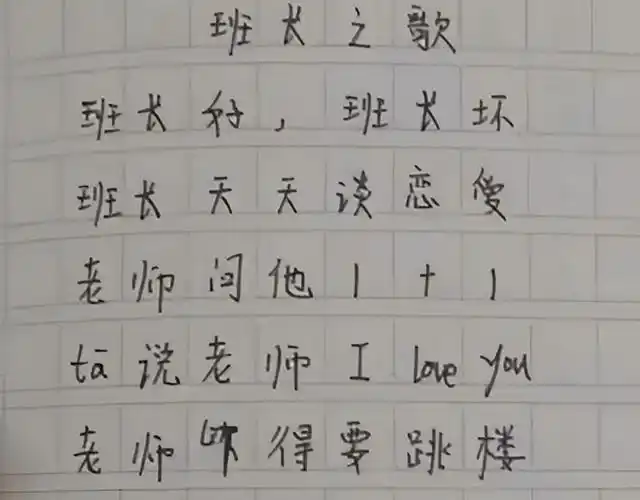 班长之歌
班长好，班长坏
班长天天谈恋爱
老师问他1+1
tā说老师I love you
老师吓得要跳楼